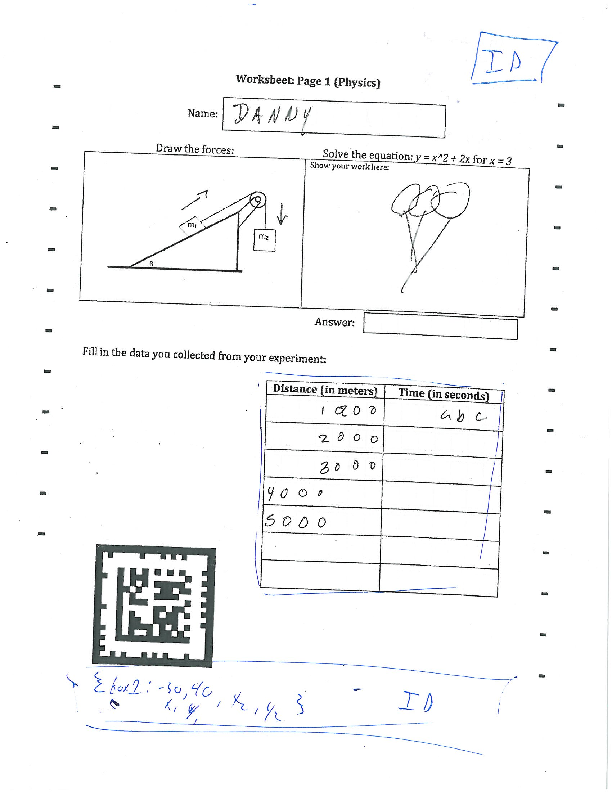 ID
Worksheet: Page 1 (Physics)
Name: DANNY
Draw the forces:
m1
m2
θ
Solve the equation: y = x^2 + 2x for x = 3
Show your work here:
Answer:
Fill in the data you collected from your experiment:
Distance (in meters) Time (in seconds)
1000 abc
2000
3000
4000
5000
{ box2: -50, 40, x2, y2 }
x, y,
ID